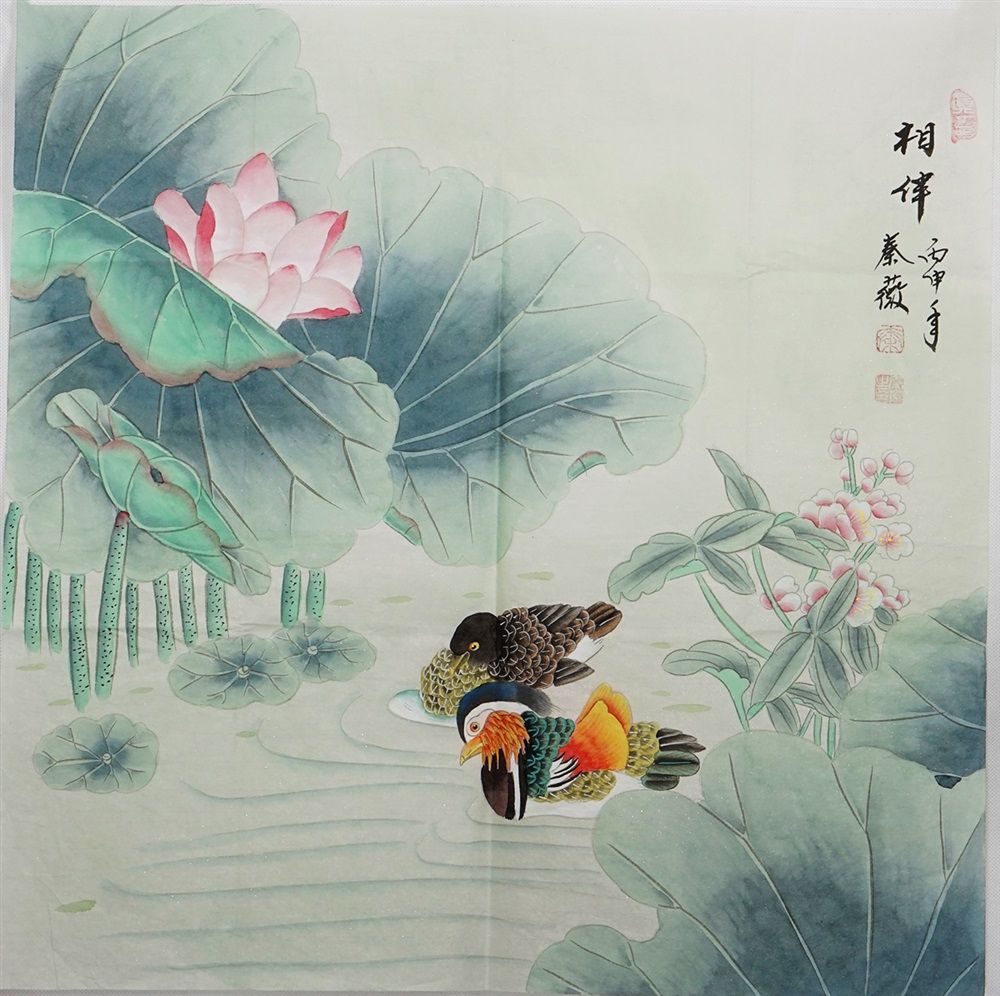 相伴
丙申年
秦薇